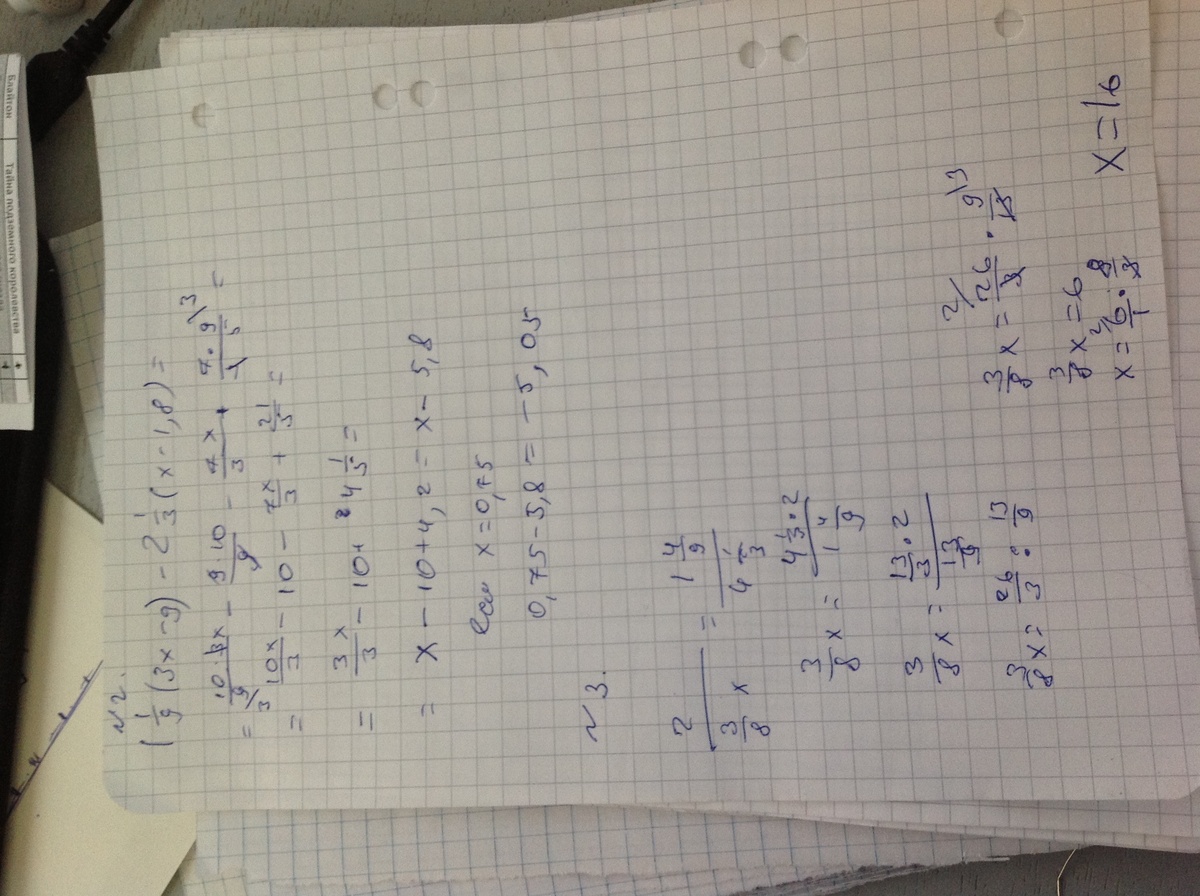 №2.
1 1/9 (3x-9) - 2 1/3 (x-1,8) =
= 10·3x/9 - 9·10/9 - 7x/3 + 7·9/1·5 =
= 10x/3 - 10 - 7x/3 + 21/5 =
= 3x/3 - 10 + 4 1/5 =
= x - 10 + 4,2 = x - 5,8
Если x = 0,75
0,75 - 5,8 = -5,05
№3.
2 / (3/8 x) = 1 4/9 / 4 1/3
3/8 x = 4 1/3 · 2 / 1 4/9
3/8 x = 13/3 · 2 / 13/9
3/8 x = 26/3 : 13/9
3/8 x = 26/3 · 9/13
3/8 x = 6
x = 6/1 · 8/3
x = 16
Блайтон
Тайна подземного королевства